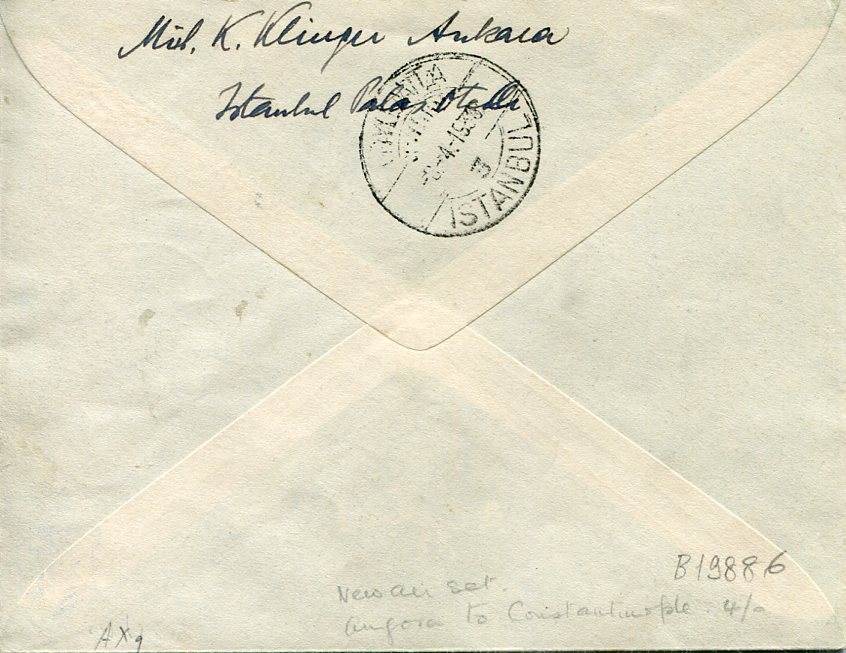 K. Klinger Ankara
Istanbul Palas Oteli
4.-193
3
ISTANBUL
B19886
New air set.
Angora to Constantinople. 4/-
AX9